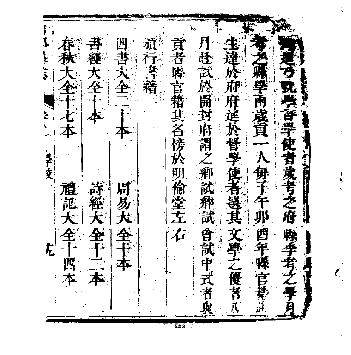 學者學使者歲考之府縣學考之學月
考之縣學兩歲貢一人每子午卯酉年縣官
生達於府府達於督學使者選其文學之優者八
月赴試於開封府謂之鄉試鄉試會試中式者與
貢者縣官籍其名榜於明倫堂左右
頒行書籍
四書大全二十本 周易大全十本
書經大全十本 詩經大全十二本
春秋大全十七本 禮記大全十四本
學校